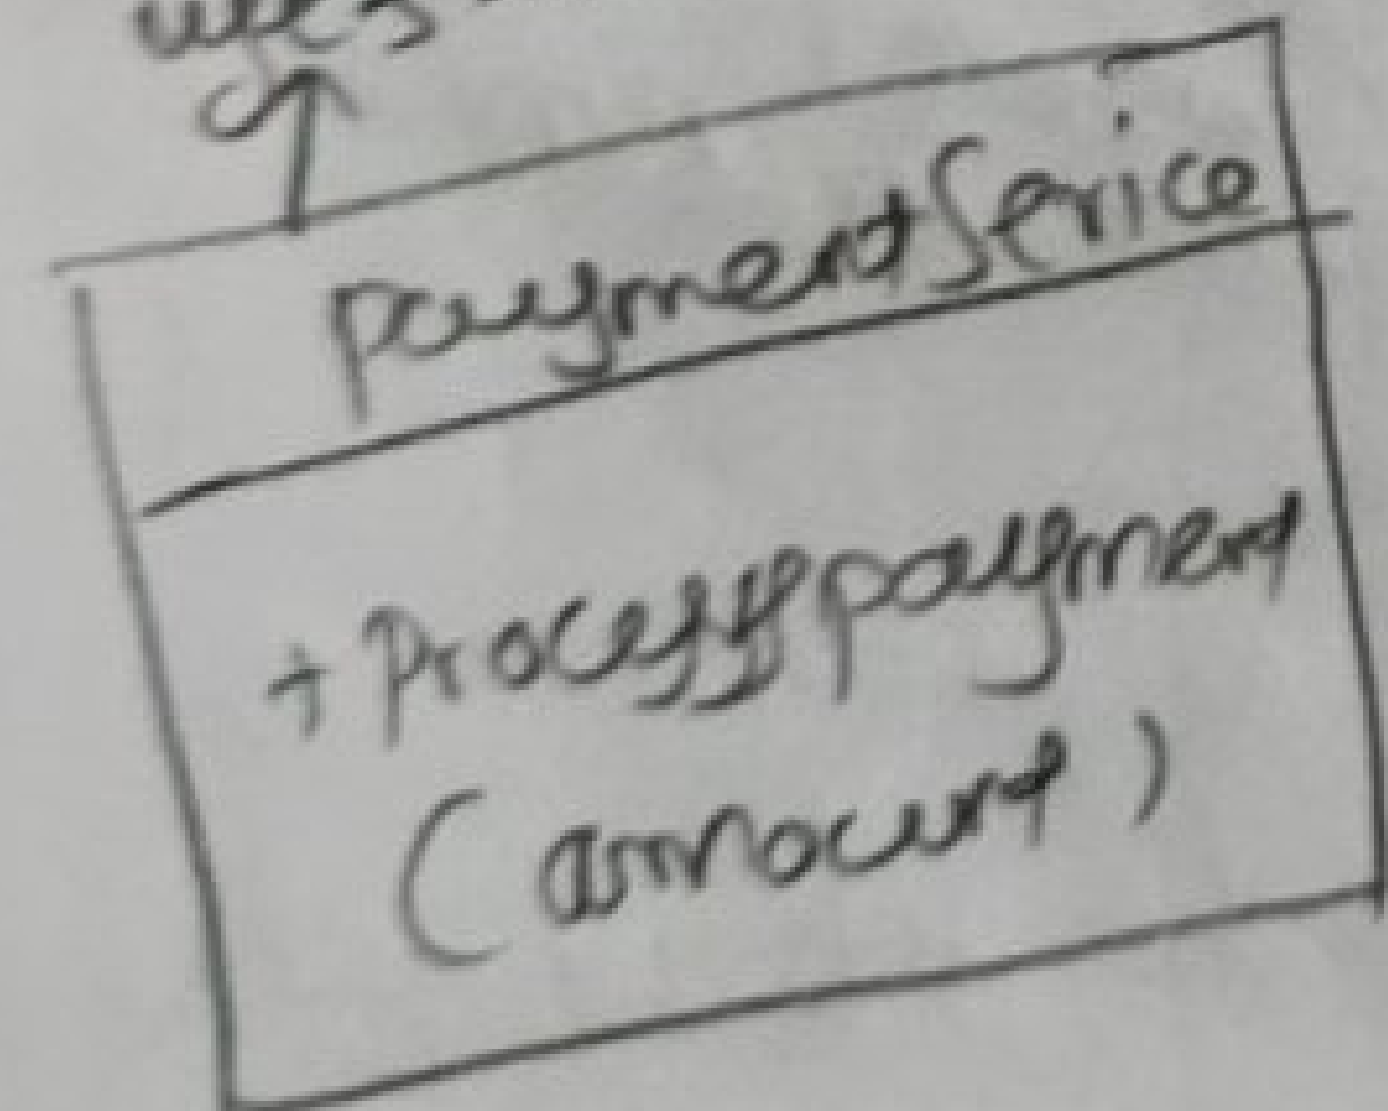 uses
paymentSerice
+Processpayment
(amount)